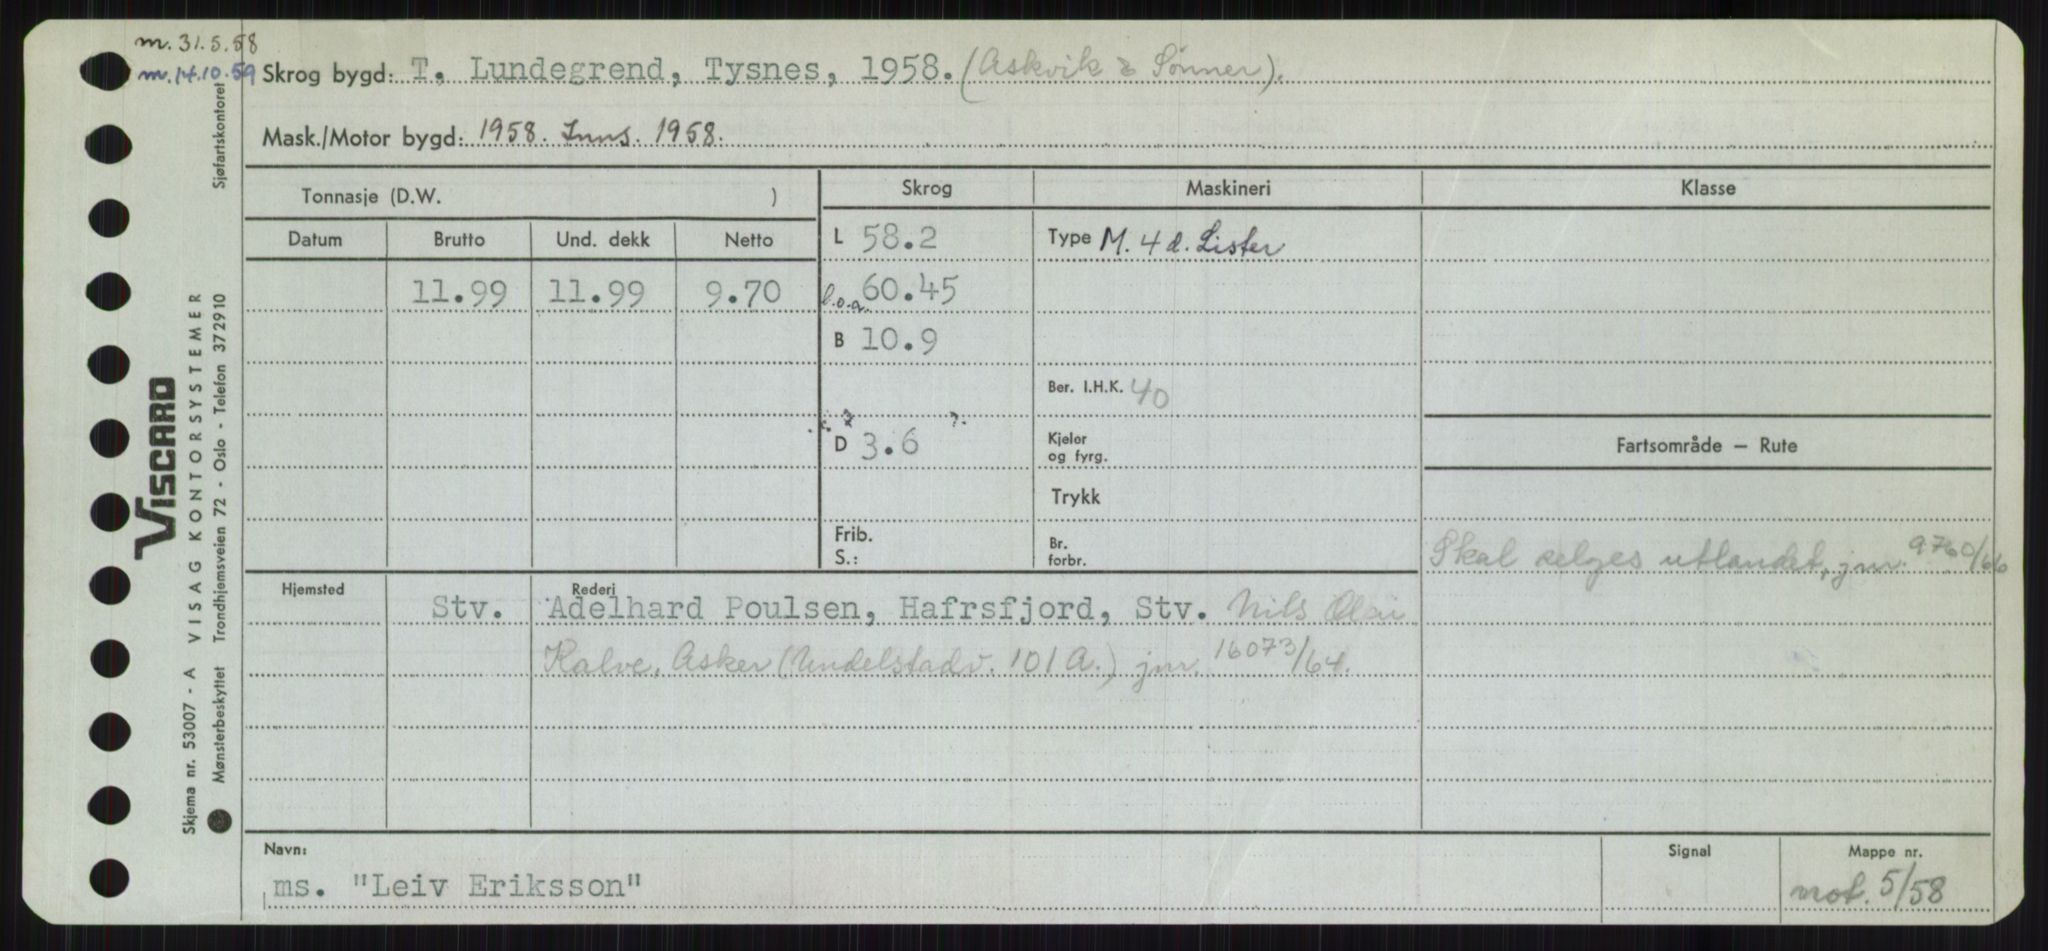 m. 31.5.58
m. 14.10.59
Skrog bygd: T. Lundegrend, Tysnes, 1958. (Askvik & Sønner).
Mask./Motor bygd: 1958. Inns. 1958.
Tonnasje (D.W. )
Skrog
Maskineri
Klasse
Datum
Brutto
Und. dekk
Netto
L 58.2
Type M. 4 d. Lister
11.99
11.99
9.70
l.o.a. 60.45
B 10.9
Ber. I.H.K. 40
D 3.6
Kjeler
og fyrg.
Fartsområde — Rute
Trykk
Frib.
S.:
Br.
forbr.
Skal selges utlandet, jnr. 9760/66
Hjemsted
Rederi
Stv. Adelhard Poulsen, Hafrsfjord, Stv. Nils Olai
Kalve, Asker (Undelstadv. 101 A.) jnr. 16073/64.
Navn:
Signal
Mappe nr.
ms. "Leiv Eriksson"
not. 5/58
VISCARD
Skjema nr. 53007 - A VISAG KONTORSYSTEMER
Mønsterbeskyttet Trondhjemsveien 72 - Oslo - Telefon 372910 Sjøfartskontoret